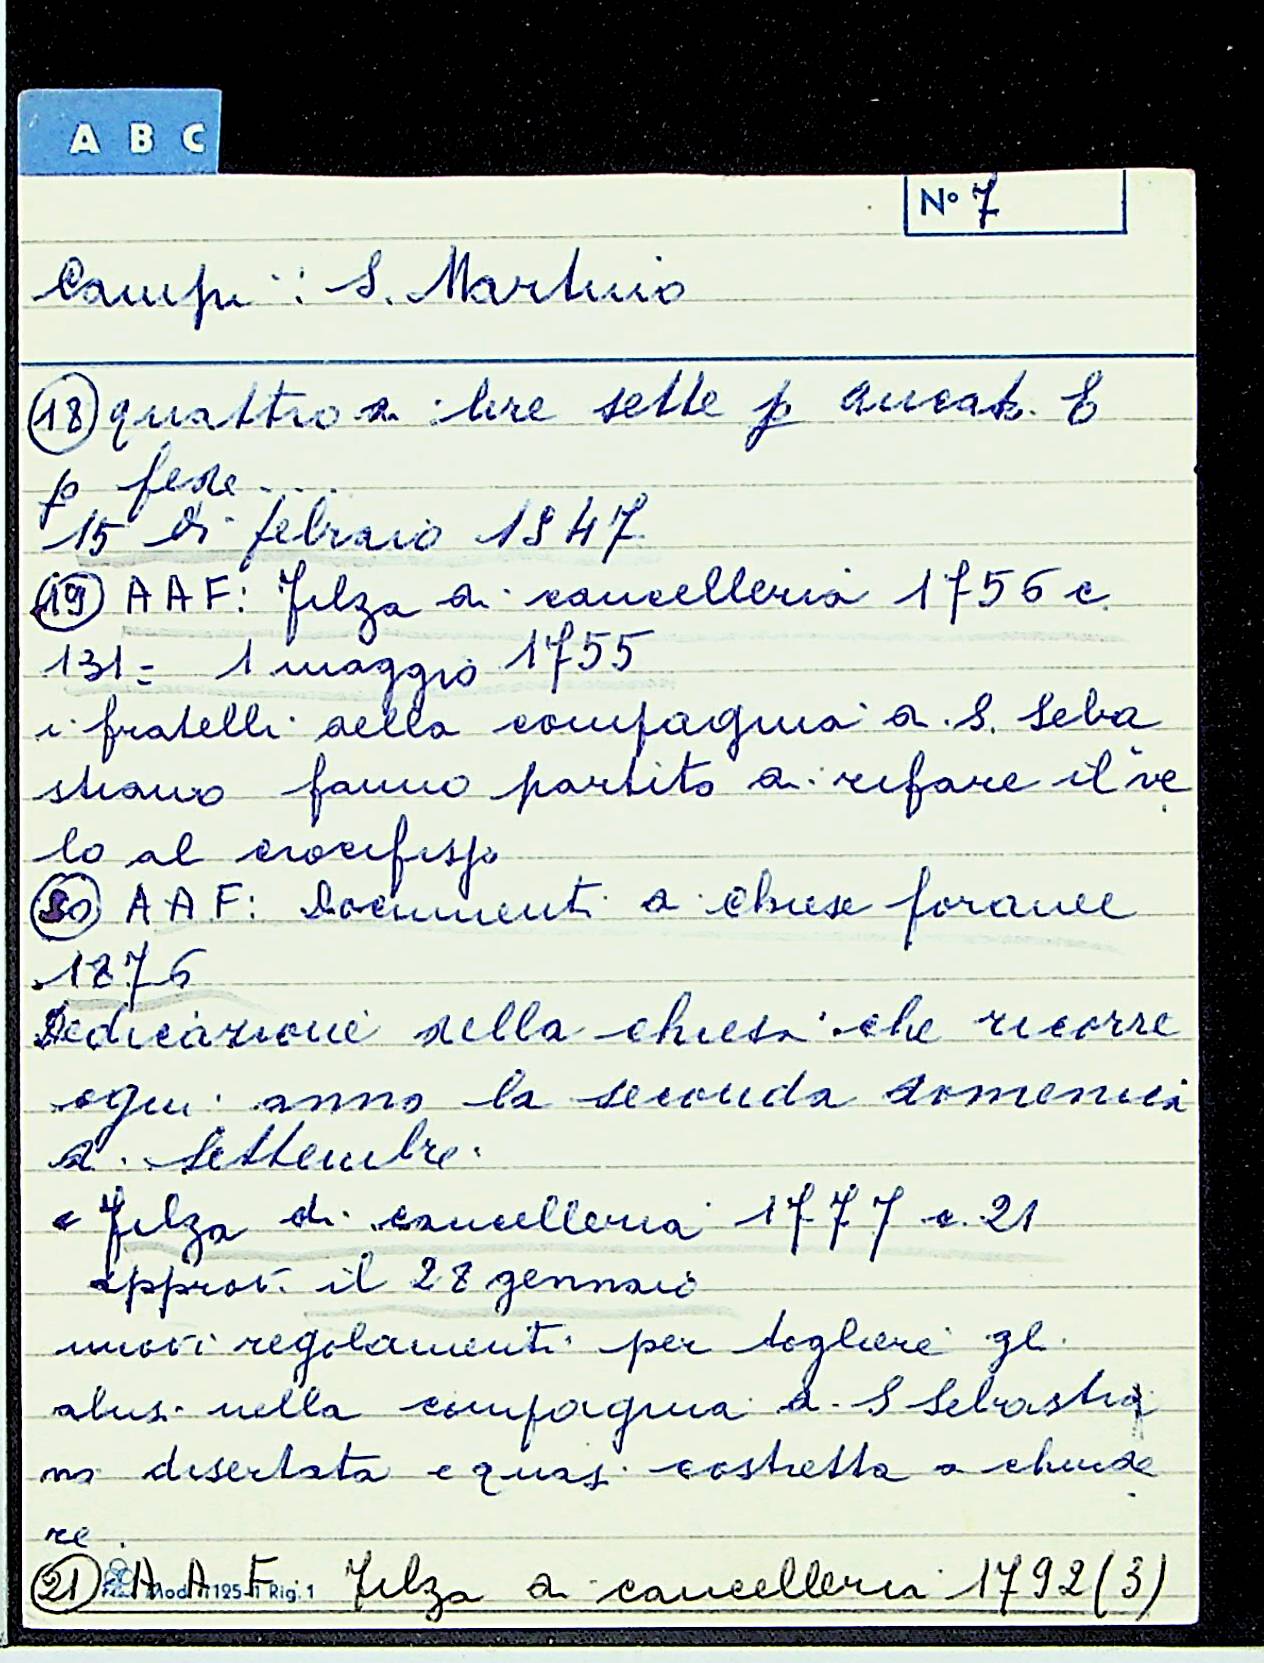 A B C
N° 7
Campi: S. Martino
18 quattro di lire sette p ducato. E
p fede....
15 di febraio 1847
19 A A F: Filza di cancelleria 1756 c.
131= 1 maggio 1755
i fratelli della compagnia di S. Seba
stiano fanno partito di rifare il ve
lo al crocifisso
20 A A F: Documenti di chiese foranee
1876
Dedicazione della chiesa che ricorre
ogni anno la seconda domenica
di Settembre.
Filza di cancelleria 1777 c. 21
approv. il 28 gennaio
nuovi regolamenti per togliere gli
abusi nella compagnia di S Sebastia
no disertata e quasi costretta a chiude
re.
21 A A F: Filza di cancelleria 1792 (3)
Mod. 1125-1 Rig. 1